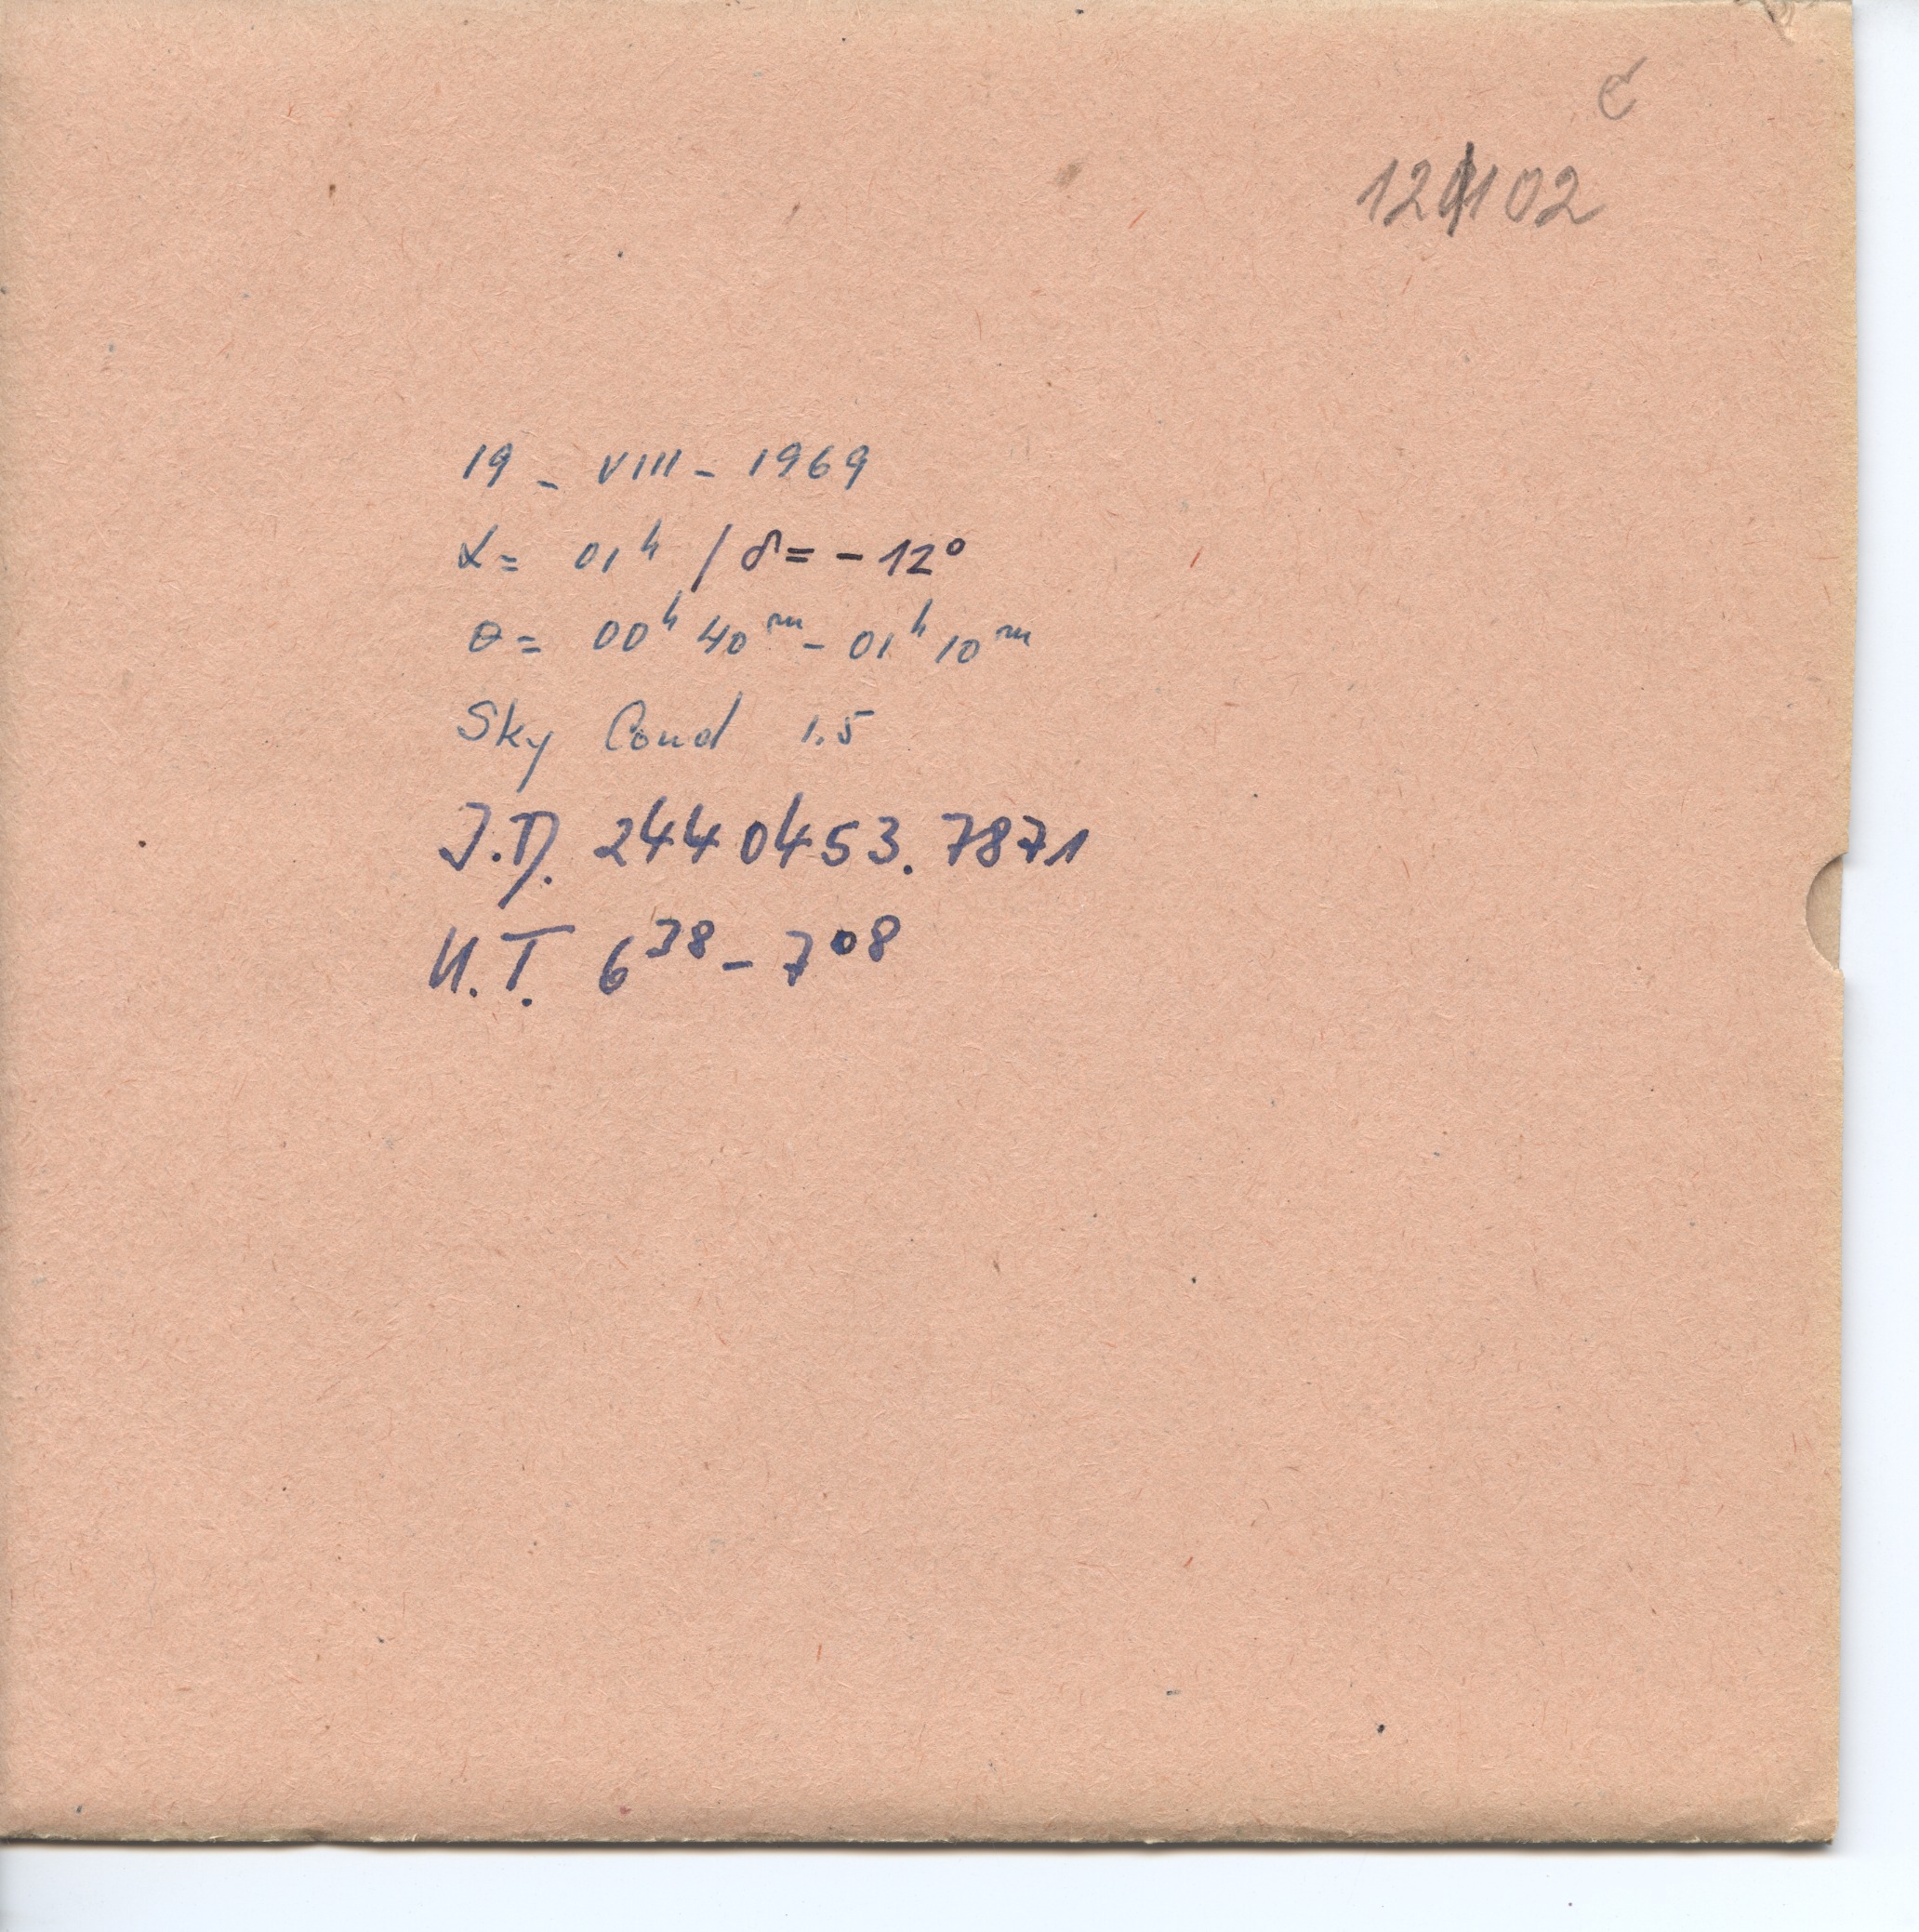 c
12102
19 - VIII - 1969
α = 01ʰ / δ = - 12°
θ = 00ʰ 40ᵐ - 01ʰ 10ᵐ
Sky Cond 1.5
J.D. 2440453.7871
U.T. 6³⁸ - 7⁰⁸